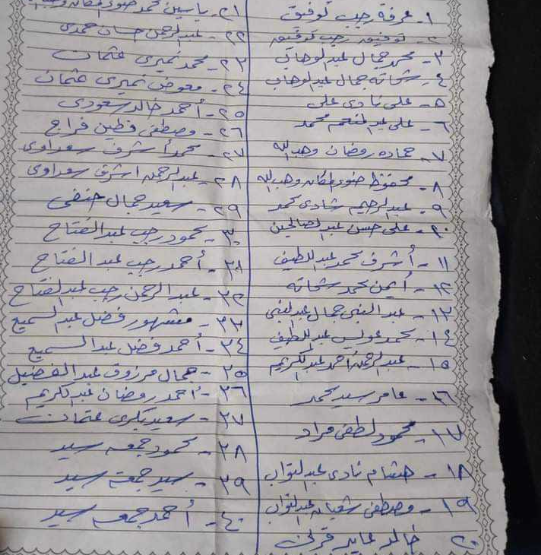 ١- عرفة رجب توفيق
٢- توفيق رجب توفيق
٣- محمد جمال عبد الوهاب
٤- شحاته جمال عبد الوهاب
٥- على نادى على
٦- على عبد المنعم محمد
٧- حماده رمضان وهب الله
٨- محفوظ وهب الله
٩- عبد الرحيم شادى محمد
١٠- على حسن عبد الصالحين
١١- أشرف محمد عبد اللطيف
١٢- أيمن محمد شحاته
١٣- عبد النبى جمال عبد النبى
١٤- محمد عبد اللطيف
١٥- عبد الرحمن أحمد عبد الكريم
١٦- عامر سيد محمد
١٧- محمود لطفى مراد
١٨- هشام نادى عبد التواب
١٩- مصطفى شعبان عبد التواب
٢٠- خالد عايد قرنى
٢١- ياسين محمد
٢٢- عبد الرحمن حسان حمدى
٢٣- محمد نميرى عثمان
٢٤- معوض نميرى عثمان
٢٥- أحمد خالد سعودى
٢٦- مصطفى فطين فراج
٢٧- محمد أشرف سعداوى
٢٨- عبد الرحمن أشرف سعداوى
٢٩- سعيد جمال حنفى
٣٠- محمود رجب عبد الفتاح
٣١- أحمد رجب عبد الفتاح
٣٢- عبد الرحمن رجب عبد الفتاح
٣٣- مشهور فضل عبد السميع
٣٤- أحمد فضل عبد السميع
٣٥- جمال مرزوق عبد الفضيل
٣٦- أحمد رمضان عبد الكريم
٣٧- سعيد بكرى عثمان
٣٨- محمود جمعه سيد
٣٩- سيد جمعه سيد
٤٠- أحمد جمعه سيد